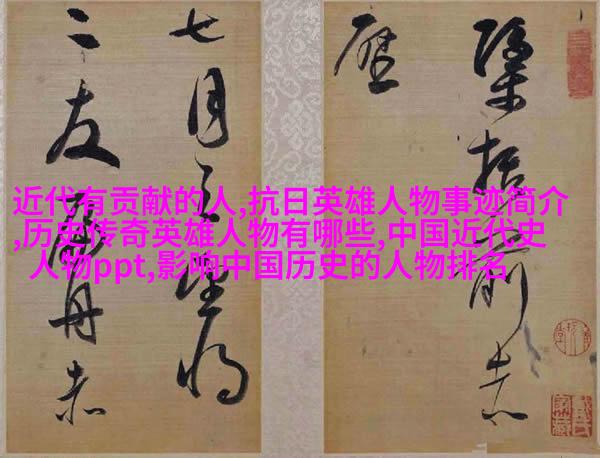 近代有贡献的人,抗日英雄人物事迹简介
,历史传奇英雄人物有哪些,中国近代史
人物ppt,影响中国历史的人物排名
檃括前赤
壁
七月之望将
二友扁舟赤